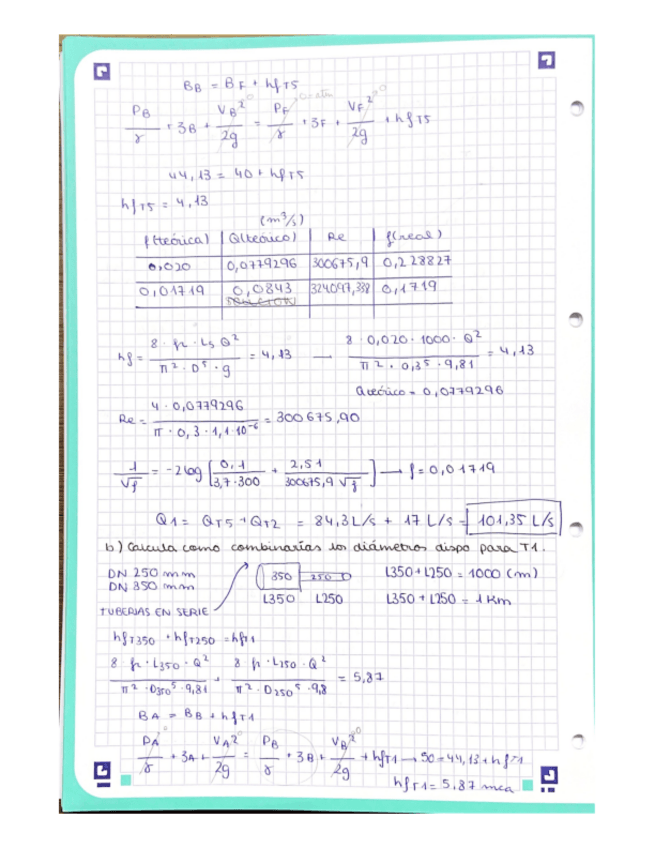 B_B = B_F + hf T5
P_B/γ + z_B + V_B²/2g = P_F/γ + z_F + V_F²/2g + hf T5
44,13 = 40 + hf T5
hf T5 = 4,13
(m³/s)
f(teórica) Q(teórico) Re f(real)
0,020 0,0779296 300675,9 0,228827
0,01719 0,0843 324097,338 0,1719
hf = 8 · f · L5 Q² / π² · D⁵ · g = 4,13 — 8 · 0,020 · 1000 · Q² / π² · 0,3⁵ · 9,81 = 4,13
Q teórico = 0,0779296
Re = 4 · 0,0779296 / π · 0,3 · 1,1·10⁻⁶ = 300 675,90
1/√f = -2log [ 0,1 / 3,7·300 + 2,51 / 300675,9 √f ] → f = 0,01719
Q1 = QT5 + QT2 = 84,3 L/s + 17 L/s = 101,35 L/s
b) Calcula como combinarías los diámetros dispo para T1.
DN 250 mm
DN 350 mm
350 250
L350 + L250 = 1000 (m)
TUBERIAS EN SERIE
L350 L250
L350 + L250 = 1 Km
hf T350 + hf T250 = hf T1
8 f · L350 · Q² / π² · D350⁵ · 9,81 + 8 f · L250 · Q² / π² · D250⁵ · 9,8 = 5,87
B_A = B_B + hf T1
P_A/γ + z_A + V_A²/2g = P_B/γ + z_B + V_B²/2g + hf T1 → 50 = 44,13 + hf T1
hf T1 = 5,87 mca